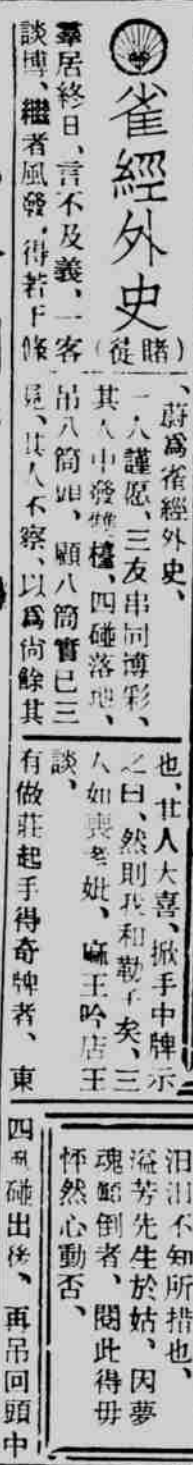 雀經外史
(賭徒)
羣居終日、言不及義、一客
談博、繼者風發、得若干條
、蔚爲雀經外史、
一人謹愿、三友串同博彩、
其人中發雙檯、四碰落地、
吊八筒頭、顧八筒實已三
見、其人不察、以爲尙餘其
也、其人大喜、掀手中牌示
之曰、然則我和勒子矣、三
人如喪考妣、麻王吟店王
談、
有做莊起手得奇牌者、東
汨汨不知所措也、
溢芳先生於姑、因夢
魂顚倒者、閱此得毋
怦然心動否、
四碰出後、再吊回頭中